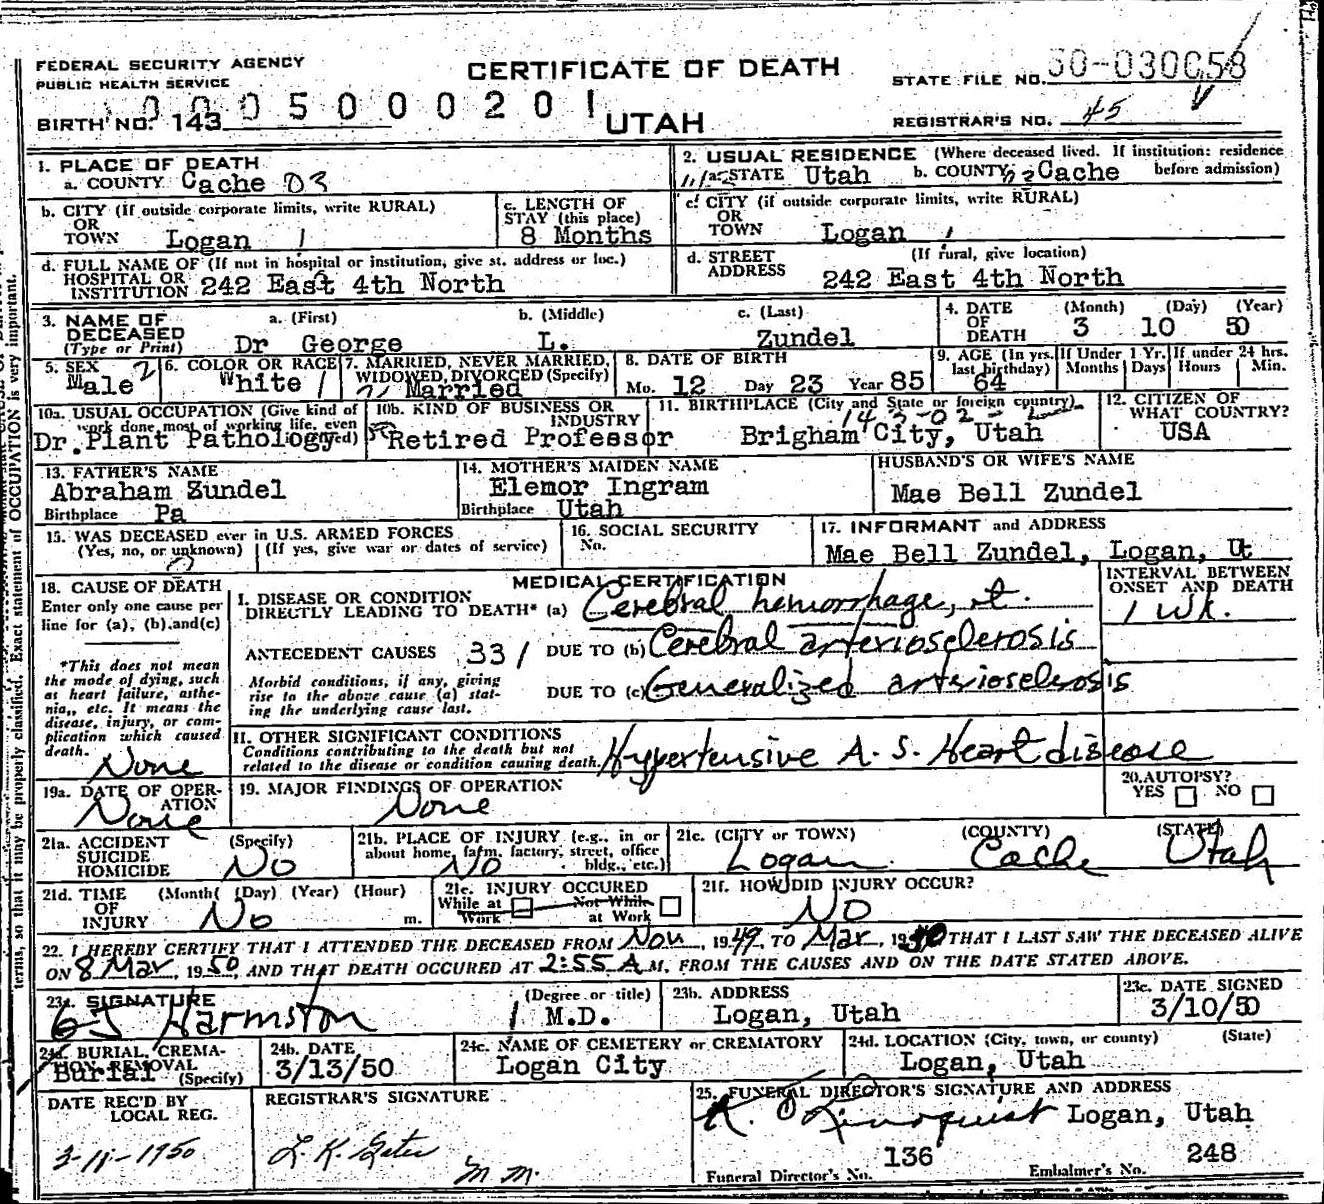 FEDERAL SECURITY AGENCY
PUBLIC HEALTH SERVICE
CERTIFICATE OF DEATH
STATE FILE NO. 50-030058
BIRTH NO. 143 000500020 1
UTAH
REGISTRAR'S NO. 45
1. PLACE OF DEATH
a. COUNTY Cache 03
2. USUAL RESIDENCE (Where deceased lived. If institution: residence before admission)
a. STATE Utah b. COUNTY Cache
b. CITY (If outside corporate limits, write RURAL)
OR
TOWN Logan 1
c. LENGTH OF
STAY (this place)
8 Months
c. CITY (if outside corporate limits, write RURAL)
OR
TOWN Logan
d. FULL NAME OF (If not in hospital or institution, give st. address or loc.)
HOSPITAL OR
INSTITUTION 242 East 4th North
d. STREET (If rural, give location)
ADDRESS
242 East 4th North
3. NAME OF
DECEASED
(Type or Print)
a. (First) b. (Middle) c. (Last)
Dr George L. Zundel
4. DATE OF DEATH (Month) (Day) (Year)
3 10 50
5. SEX 2
Male
6. COLOR OR RACE
White 1
7. MARRIED, NEVER MARRIED,
WIDOWED, DIVORCED (Specify)
Married
8. DATE OF BIRTH
Mo. 12 Day 23 Year 85
9. AGE (In yrs. last birthday)
64
If Under 1 Yr.
Months Days
If under 24 hrs.
Hours Min.
10a. USUAL OCCUPATION (Give kind of
work done most of working life, even
Dr. Plant Pathology
10b. KIND OF BUSINESS OR
INDUSTRY
Retired Professor
11. BIRTHPLACE (City and State or foreign country)
143-02-
Brigham City, Utah
12. CITIZEN OF
WHAT COUNTRY?
USA
13. FATHER'S NAME
Abraham Zundel
Birthplace Pa
14. MOTHER'S MAIDEN NAME
Elemor Ingram
Birthplace Utah
HUSBAND'S OR WIFE'S NAME
Mae Bell Zundel
15. WAS DECEASED ever in U.S. ARMED FORCES
(Yes, no, or unknown) (If yes, give war or dates of service)
16. SOCIAL SECURITY
No.
17. INFORMANT and ADDRESS
Mae Bell Zundel, Logan, Ut
18. CAUSE OF DEATH
Enter only one cause per
line for (a), (b), and (c)
*This does not mean
the mode of dying, such
as heart failure, asthe-
nia,, etc. It means the
disease, injury, or com-
plication which caused
death.
None
MEDICAL CERTIFICATION
I. DISEASE OR CONDITION
DIRECTLY LEADING TO DEATH* (a) Cerebral hemorrhage, rt.
INTERVAL BETWEEN
ONSET AND DEATH
1 Wk.
ANTECEDENT CAUSES 331 DUE TO (b) Cerebral arteriosclerosis
Morbid conditions, if any, giving
rise to the above cause (a) stat-
ing the underlying cause last.
DUE TO (c) Generalized arteriosclerosis
II. OTHER SIGNIFICANT CONDITIONS
Conditions contributing to the death but not
related to the disease or condition causing death.
Hypertensive A. S. Heart disease
19a. DATE OF OPER-
ATION
None
19. MAJOR FINDINGS OF OPERATION
None
20. AUTOPSY?
YES NO
21a. ACCIDENT (Specify)
SUICIDE
HOMICIDE No
21b. PLACE OF INJURY (e.g., in or
about home, farm, factory, street, office
bldg., etc.)
No
21c. (CITY or TOWN) (COUNTY) (STATE)
Logan Cache Utah
21d. TIME (Month) (Day) (Year) (Hour)
OF
INJURY No m.
21e. INJURY OCCURED
While at Work Not While at Work
21f. HOW DID INJURY OCCUR?
NO
22. I HEREBY CERTIFY THAT I ATTENDED THE DECEASED FROM Nov, 1949, TO Mar, 1950 THAT I LAST SAW THE DECEASED ALIVE
ON 8 Mar, 1950, AND THAT DEATH OCCURED AT 2:55 A M, FROM THE CAUSES AND ON THE DATE STATED ABOVE.
23a. SIGNATURE (Degree or title)
Harmston M.D.
23b. ADDRESS
Logan, Utah
23c. DATE SIGNED
3/10/50
24a. BURIAL, CREMA-
TION, REMOVAL
Burial (Specify)
24b. DATE
3/13/50
24c. NAME OF CEMETERY or CREMATORY
Logan City
24d. LOCATION (City, town, or county) (State)
Logan, Utah
DATE REC'D BY
LOCAL REG.
3-11-1950
REGISTRAR'S SIGNATURE
M.M.
25. FUNERAL DIRECTOR'S SIGNATURE AND ADDRESS
Logan, Utah
Funeral Director's No. 136
Embalmer's No. 248
terms, so that it may be properly classified. Exact statement of OCCUPATION is very important.